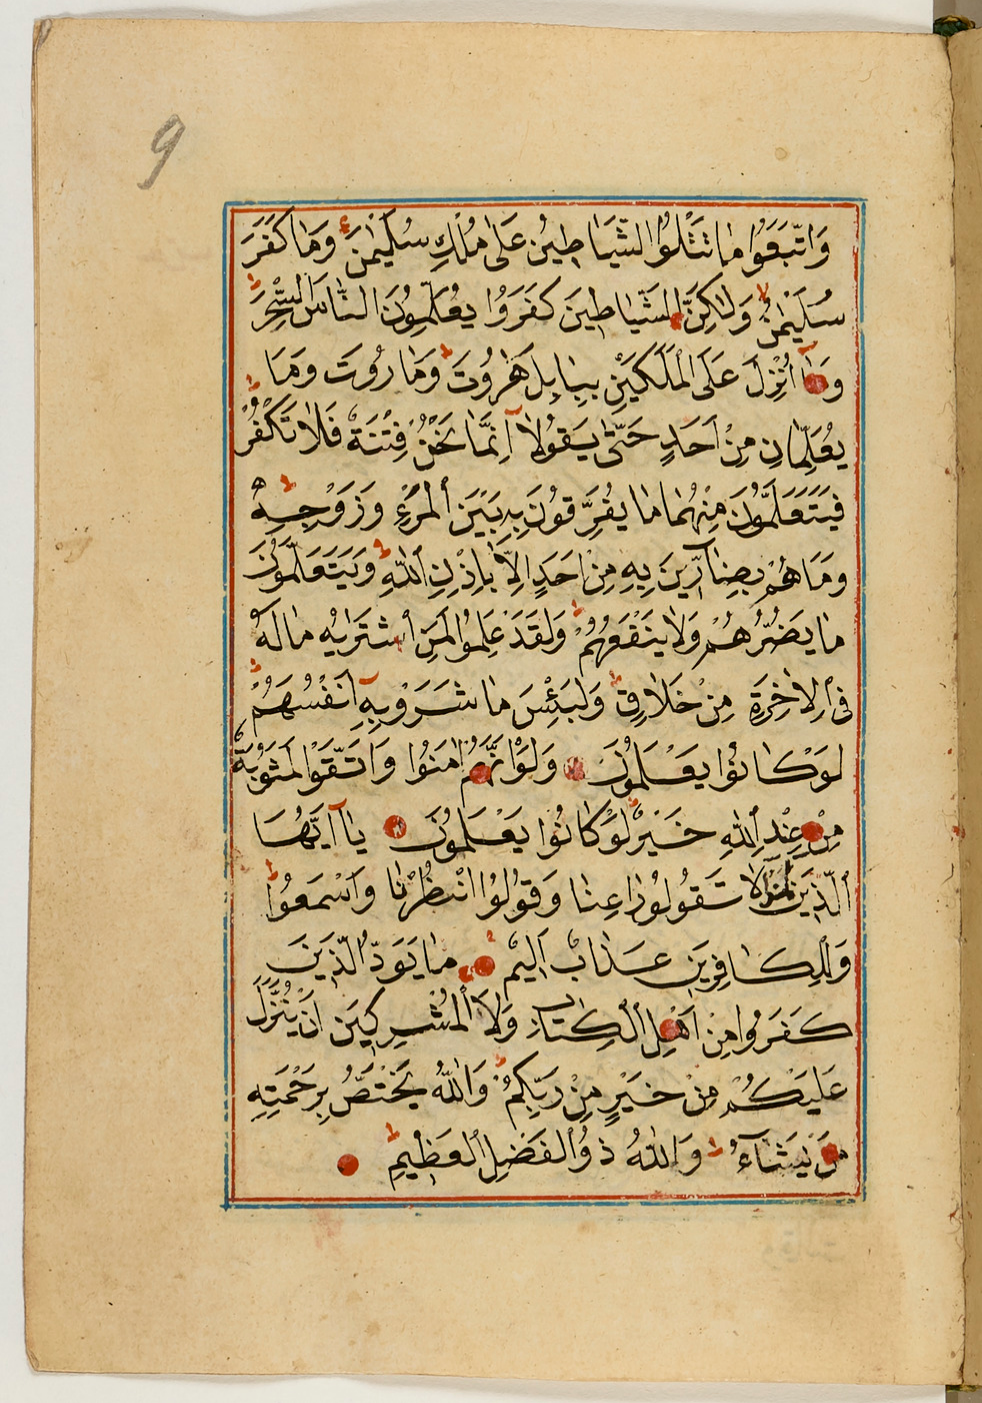 9
وَاتَّبَعُوا مَا تَتْلُوا الشَّيَاطِينُ عَلٰى مُلْكِ سُلَيْمٰنَ وَمَا كَفَرَ
سُلَيْمٰنُ وَلٰكِنَّ الشَّيَاطِينَ كَفَرُوا يُعَلِّمُونَ النَّاسَ السِّحْرَ
وَمَٓا اُنْزِلَ عَلَى الْمَلَكَيْنِ بِبَابِلَ هٰرُوتَ وَمَارُوتَ وَمَا
يُعَلِّمَانِ مِنْ اَحَدٍ حَتّٰى يَقُولَٓا اِنَّمَا نَحْنُ فِتْنَةٌ فَلَا تَكْفُرْ
فَيَتَعَلَّمُونَ مِنْهُمَا مَا يُفَرِّقُونَ بِهِ بَيْنَ الْمَرْءِ وَزَوْجِهِ
وَمَا هُمْ بِضَٓارِّينَ بِهِ مِنْ اَحَدٍ اِلَّا بِاِذْنِ اللّٰهِ وَيَتَعَلَّمُونَ
مَا يَضُرُّهُمْ وَلَا يَنْفَعُهُمْ وَلَقَدْ عَلِمُوا لَمَنِ اشْتَرٰيهُ مَا لَهُ
فِى الْاٰخِرَةِ مِنْ خَلَاقٍ وَلَبِئْسَ مَا شَرَوْا بِهِٓ اَنْفُسَهُمْ
لَوْ كَانُوا يَعْلَمُونَ وَلَوْ اَنَّهُمْ اٰمَنُوا وَاتَّقَوْا لَمَثُوبَةٌ
مِنْ عِنْدِ اللّٰهِ خَيْرٌ لَوْ كَانُوا يَعْلَمُونَ يَٓا اَيُّهَا
الَّذِينَ اٰمَنُوا لَا تَقُولُوا رَاعِنَا وَقُولُوا انْظُرْنَا وَاسْمَعُوا
وَلِلْكَافِرِينَ عَذَابٌ اَلِيمٌ مَا يَوَدُّ الَّذِينَ
كَفَرُوا مِنْ اَهْلِ الْكِتَابِ وَلَا الْمُشْرِكِينَ اَنْ يُنَزَّلَ
عَلَيْكُمْ مِنْ خَيْرٍ مِنْ رَبِّكُمْ وَاللّٰهُ يَخْتَصُّ بِرَحْمَتِهِ
مَنْ يَشَٓاءُ وَاللّٰهُ ذُو الْفَضْلِ الْعَظِيمِ